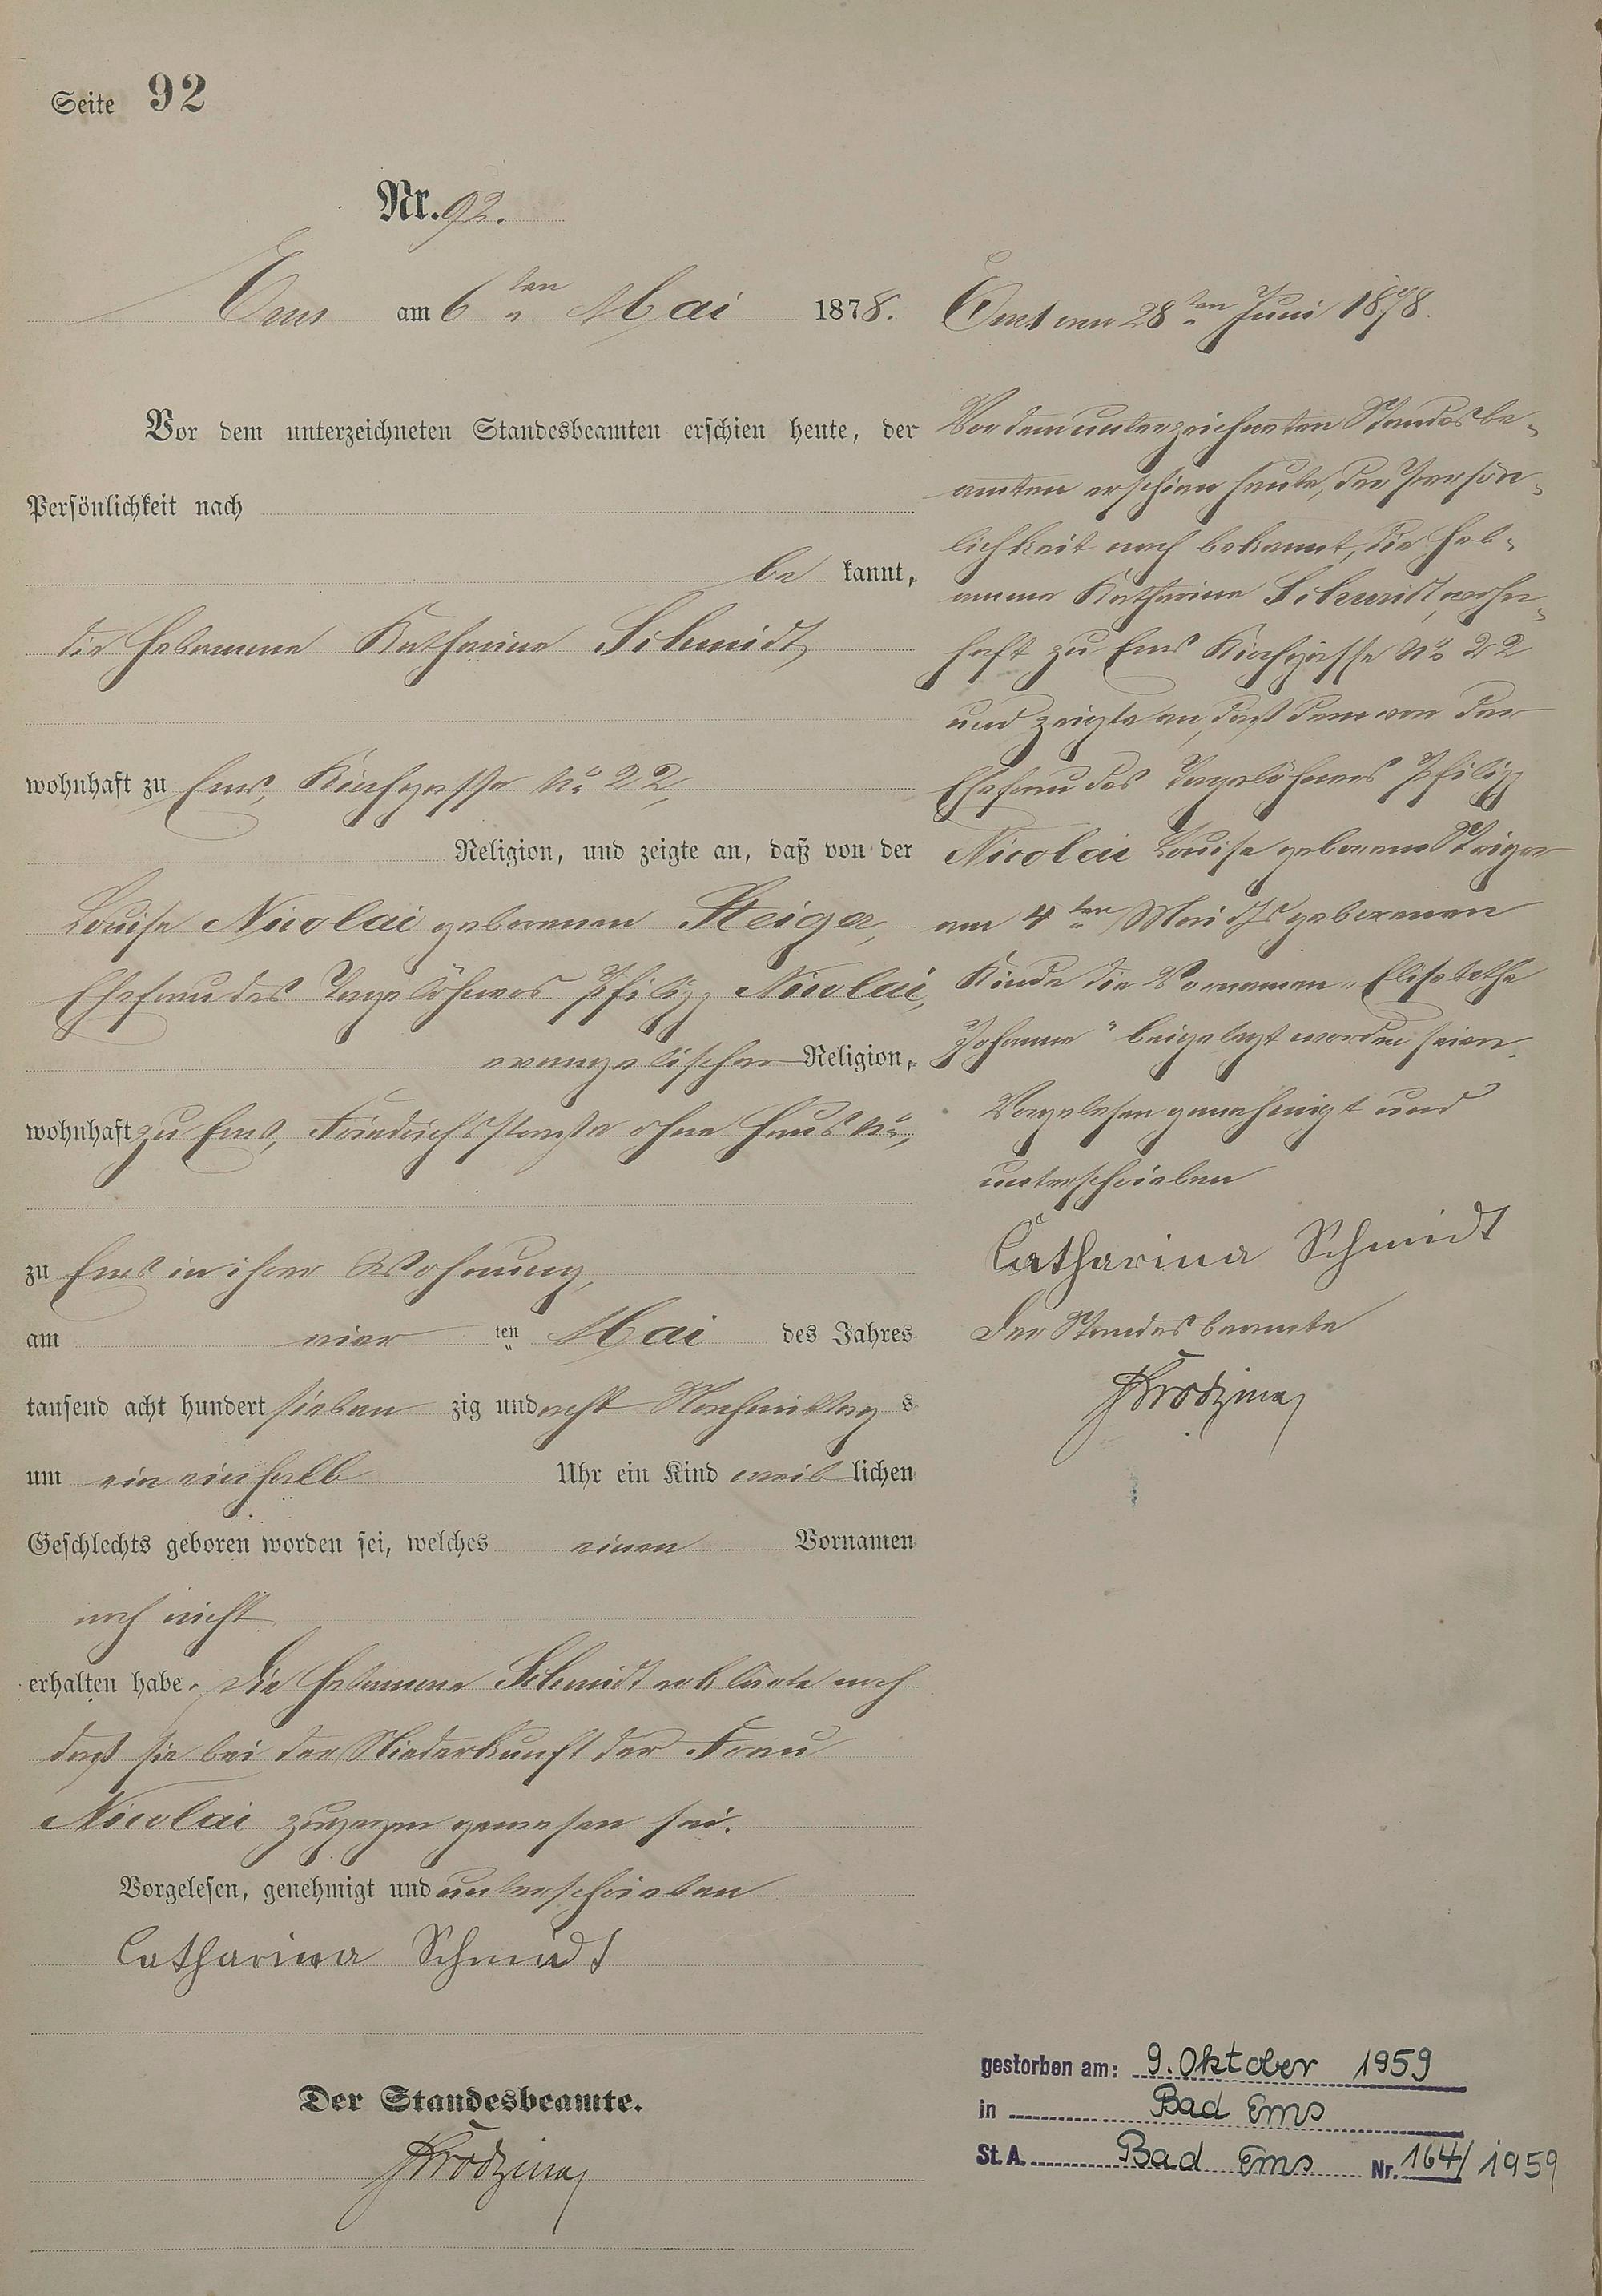 Seite 92
Nr. 92.
Ems am 6ten Mai 1878.
Vor dem unterzeichneten Standesbeamten erschien heute, der
Persönlichkeit nach
be kannt,
die Hebamme Katharina Schmidt,
wohnhaft zu Ems, Kirchgasse No 22,
Religion, und zeigte an, daß von der
Louise Nicolai geborenen Steiger,
Ehefrau des Tagelöhners Philipp Nicolai,
evangelischer Religion,
wohnhaft zu Ems, Friedrichsstraße ohne Haus No,
zu Ems in ihrer Wohnung,
am vier ten Mai des Jahres
tausend acht hundert sieben zig und acht Nachmittag s
um ein einhalb Uhr ein Kind weib lichen
Geschlechts geboren worden sei, welches einen Vornamen
noch nicht
erhalten habe. Die Hebamme Schmidt erklärte noch
daß sie bei der Niederkunft der Frau
Nicolai zugegen gewesen sei.
Vorgelesen, genehmigt und unterschrieben
Catharina Schmidt
Der Standesbeamte.
Ems am 28ten Juni 1878.
Vor dem unterzeichneten Standesbe-
amten erschien heute, der Persön-
lichkeit nach bekannt, die Heb-
amme Katharina Schmidt, wohn-
haft zu Ems Kirchgasse No 22
und zeigte an, daß dem von der
Ehefrau des Tagelöhners Philipp
Nicolai Louise geborene Steiger
am 4ten Mai d Js geborenen
Kinde die Vornamen „Elisabethe
Johanna" beigelegt worden seien.
Vorgelesen genehmigt und
unterschrieben
Catharina Schmidt
Der Standesbeamte
gestorben am: 9. Oktober 1959
in Bad Ems
St. A. Bad Ems Nr. 164/1959